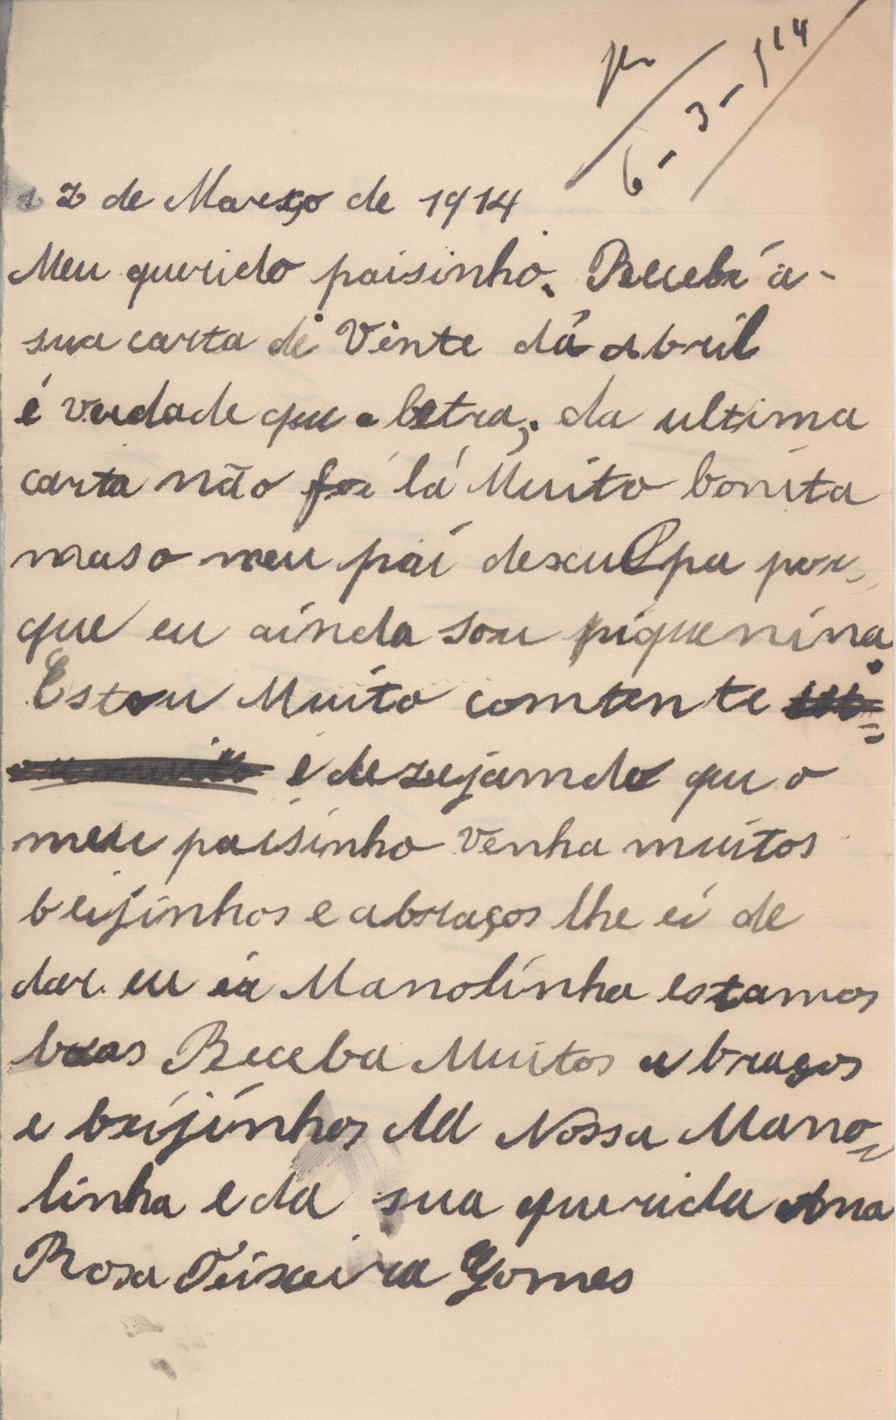 6-3-914
2 de Março de 1914
Meu querido paisinho. Recebi a-
sua carta de Vinte dá abril
é verdade que a letra, da ultima
carta não foi lá Muito bonita
mas o meu pai desculpa por-
que eu ainda sou piquenina.
Estou Muito comtente
e dezejamdo qu o
meu paisinho venha muitos
beijinhos e abraços lhe ei de
dar. eu ia Manolinha estamos
boas Receba Muitos abraços
e beijinhos dA Nossa Mano=
linha e da sua querida Ana
Rosa Teixeira Gomes